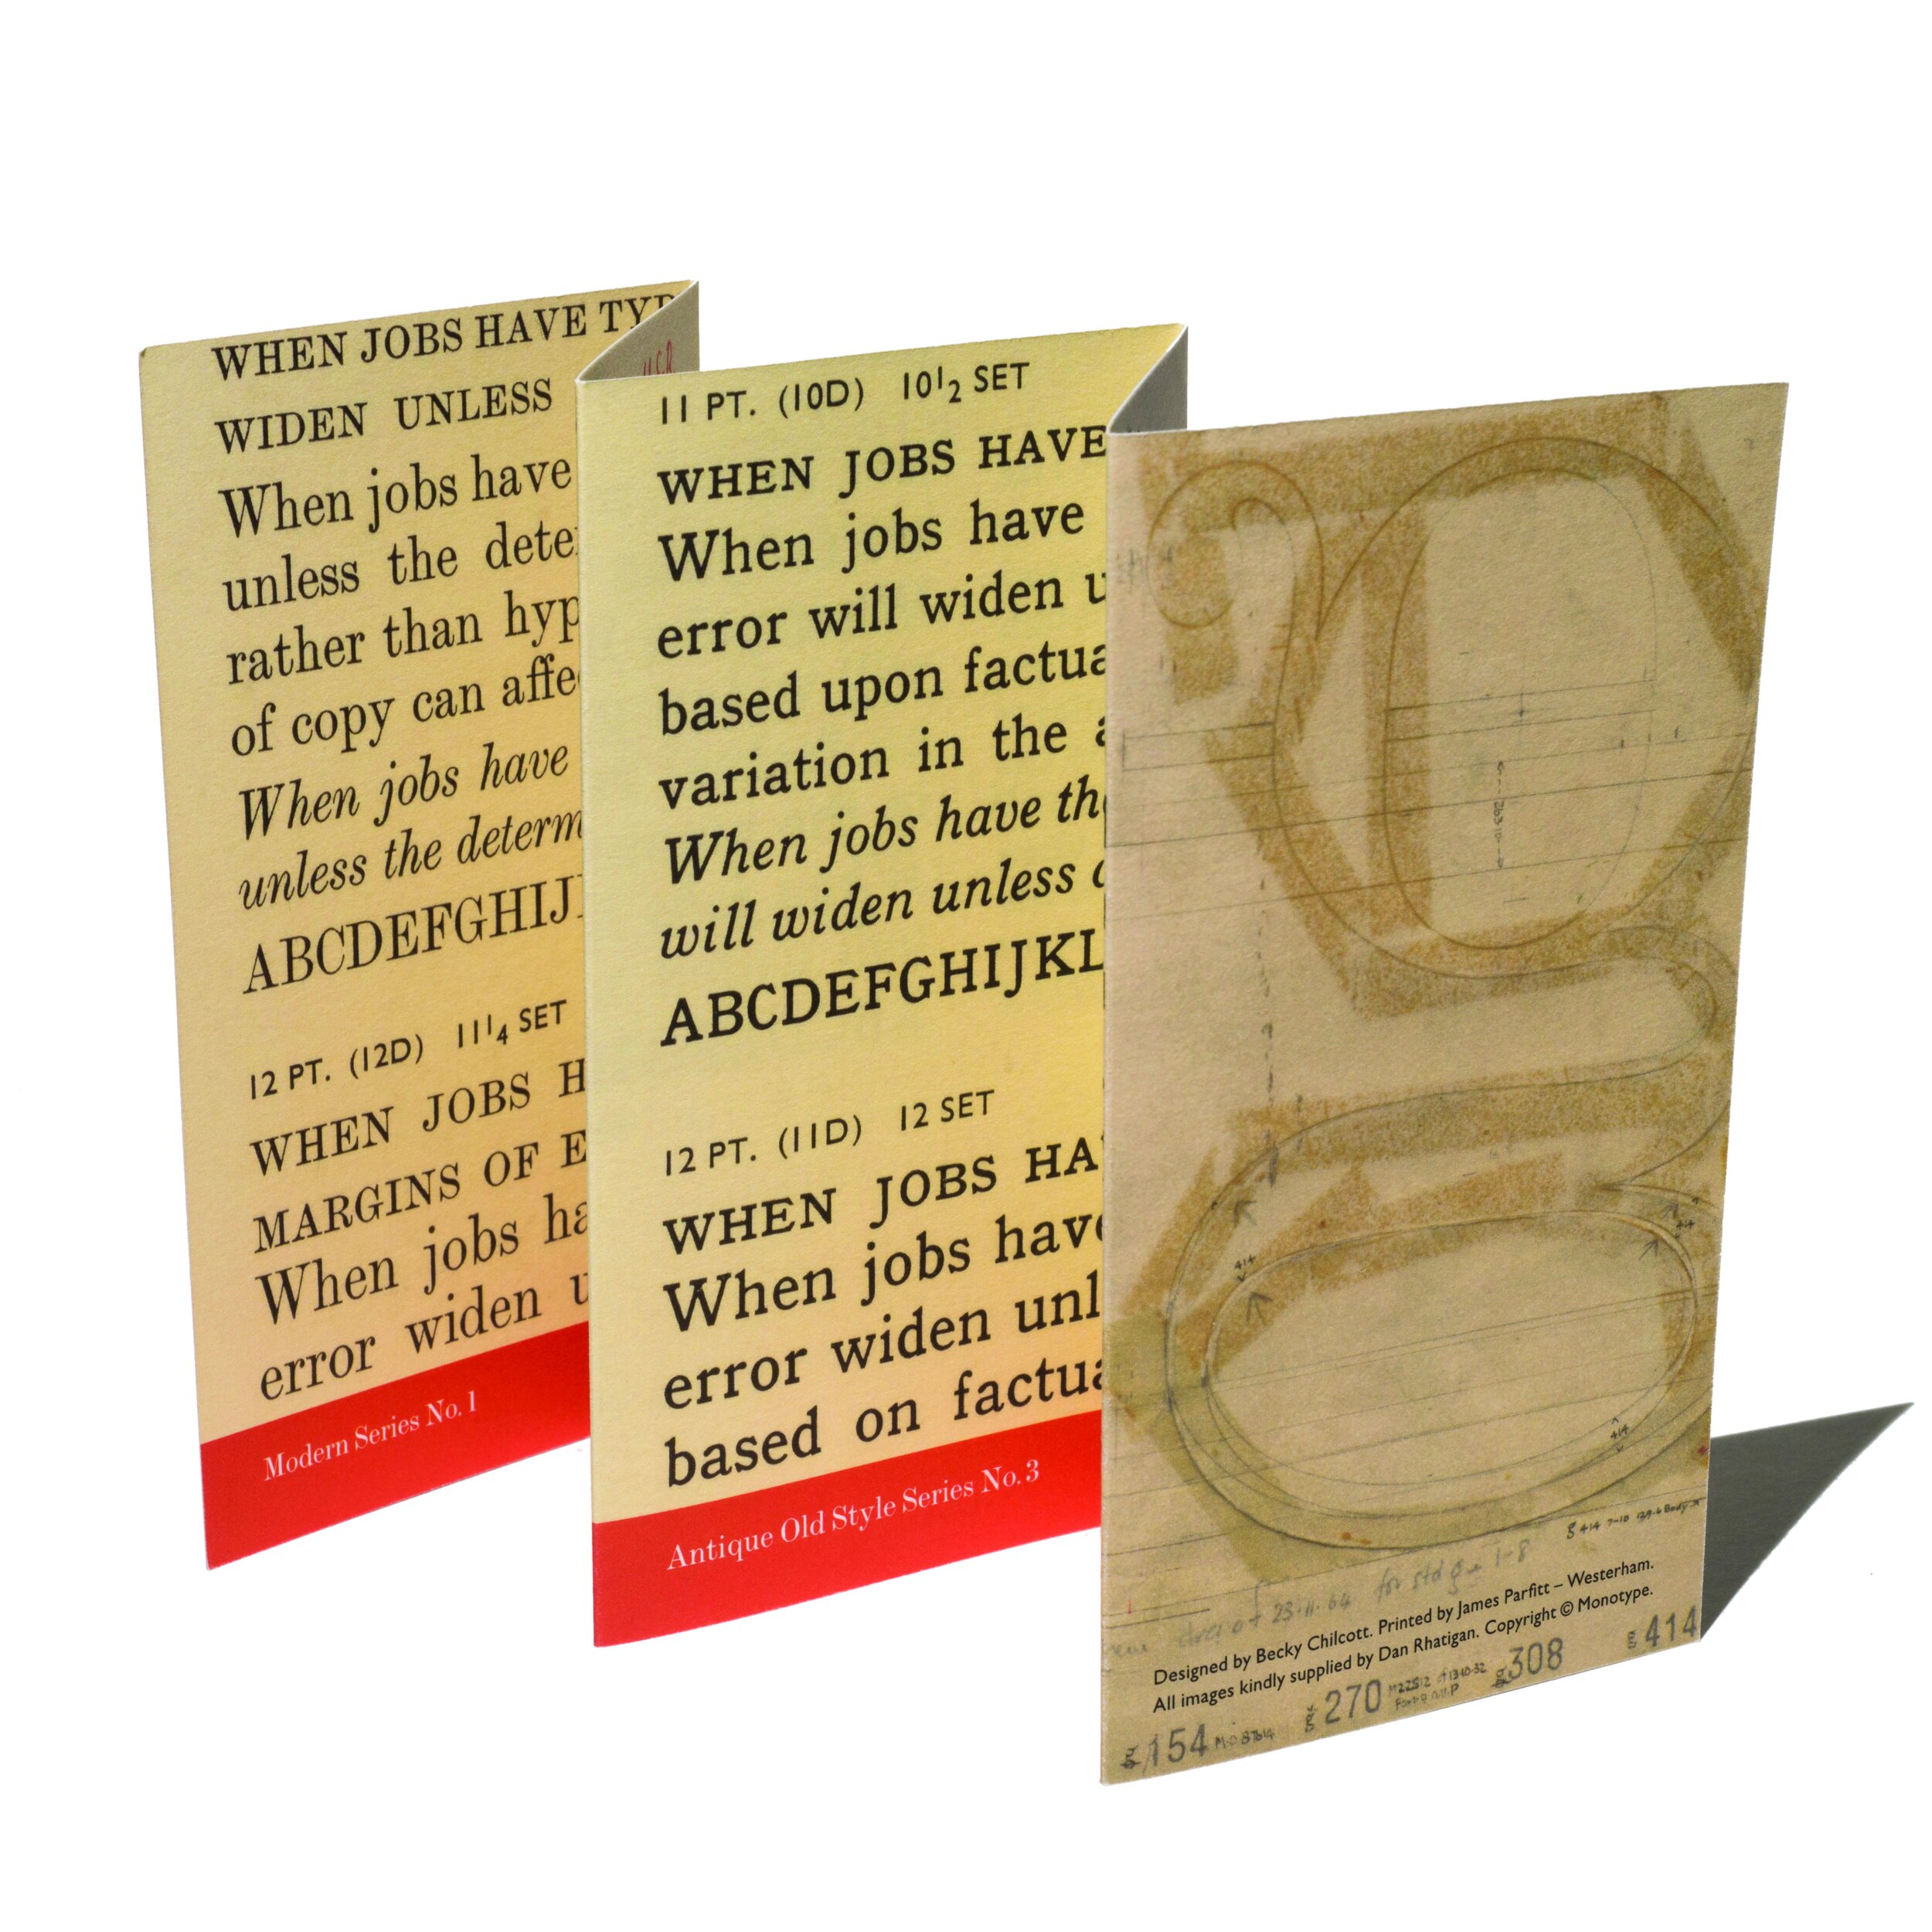 WHEN JOBS HAVE TYP
WIDEN UNLESS
When jobs have
unless the dete
rather than hyp
of copy can affe
When jobs have
unless the determ
ABCDEFGHIJ
12 PT. (12D) 11 1/4 SET
WHEN JOBS H
MARGINS OF E
When jobs ha
error widen u
Modern Series No. 1
11 PT. (10D) 10 1/2 SET
WHEN JOBS HAVE
When jobs have
error will widen u
based upon factua
variation in the a
When jobs have the
will widen unless
ABCDEFGHIJKL
12 PT. (11D) 12 SET
WHEN JOBS HA
When jobs have
error widen unl
based on factua
Antique Old Style Series No. 3
414
414
414
g 414 7-10
23·11·64 for std g 1-8
Designed by Becky Chilcott. Printed by James Parfitt – Westerham.
All images kindly supplied by Dan Rhatigan. Copyright © Monotype.
g 154 g 270 g 308 g 414